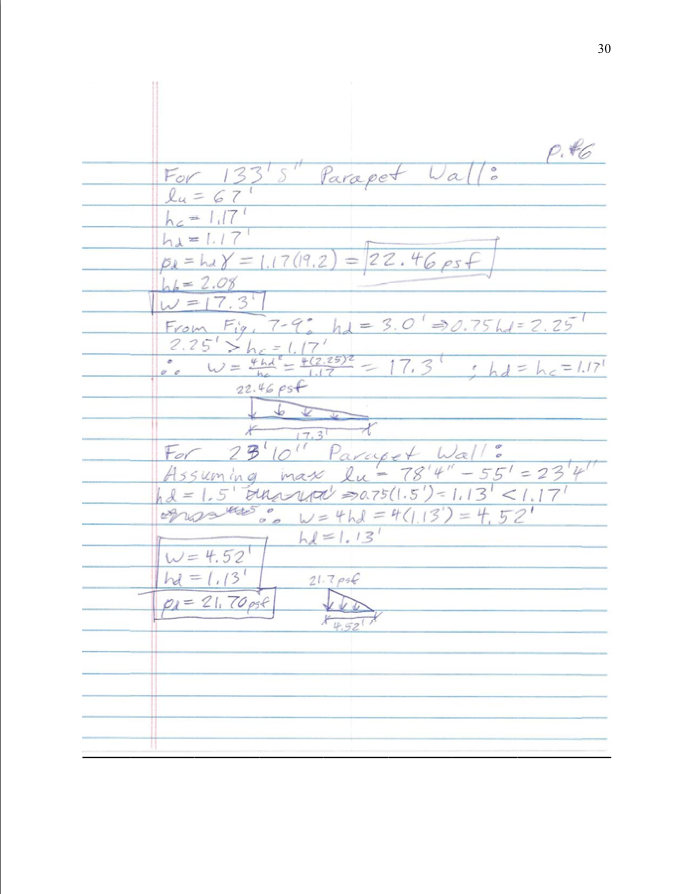 30
p. #6
For 133'5" Parapet Wall:
lu = 67'
hc = 1.17'
hd = 1.17'
pd = hdγ = 1.17(19.2) = 22.46 psf
hb = 2.08
w = 17.3'
From Fig. 7-9: hd = 3.0' ⇒ 0.75hd = 2.25'
2.25' > hc = 1.17'
∴ w = 4hd²/hc = 4(2.25)²/1.17 = 17.3' ; hd = hc = 1.17'
22.46 psf
17.3'
For 23'10" Parapet Wall:
Assuming max lu = 78'4" - 55' = 23'4"
hd = 1.5' ⇒ 0.75(1.5') = 1.13' < 1.17'
∴ w = 4hd = 4(1.13') = 4.52'
hd = 1.13'
w = 4.52'
hd = 1.13'
pd = 21.70 psf
21.7 psf
4.52'